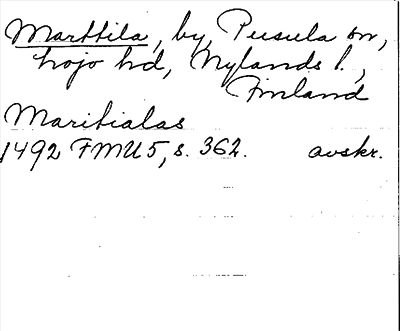 Marttila, by, Pusula sn,
Lojo hd, Nylands l.,
Finland
Maritialas
1492 FMU 5, s. 362. avskr.